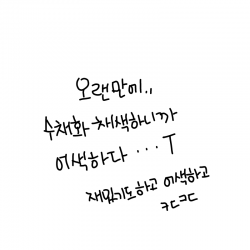 오랜만에..
수채화 채색하니까
어색하다 ... T
재밌기도하고 어색하고
ㅋㄷㅋㄷ